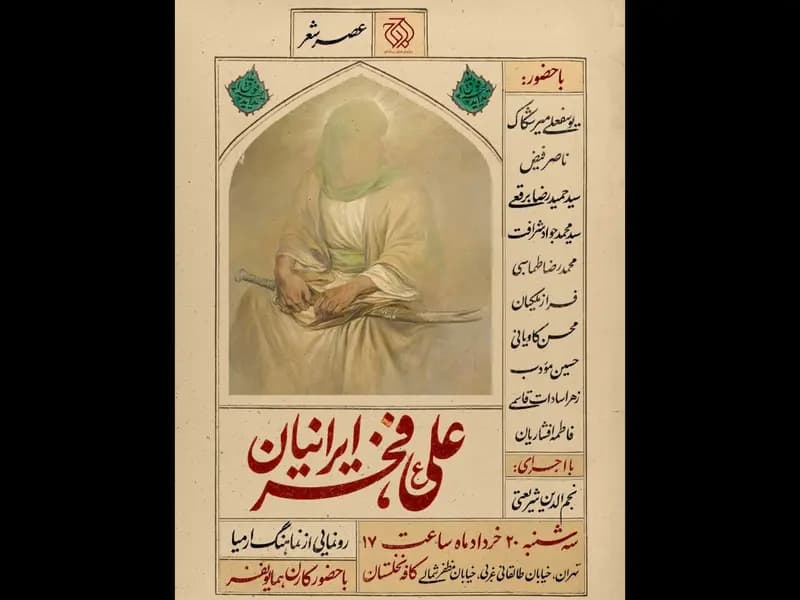 عصر شعر
با حضور:
یوسفعلی میرشکاک
ناصر فیض
سید حمیدرضا برقعی
سید محمدجواد شرافت
محمدرضا طهماسبی
فراز ملکیان
محسن کاویانی
حسین مؤدب
زهرا سادات قاسمی
فاطمه افشاریان
با اجرای:
نجم الدین شریعتی
علی ع فخر ایرانیان
سه شنبه ۲۰ خرداد ماه ساعت ۱۷
تهران، خیابان طالقانی غربی، خیابان مظفر شمالی کافه نخلستان
رونمایی از نماهنگ ارمیا
با حضور کارن همایونفر